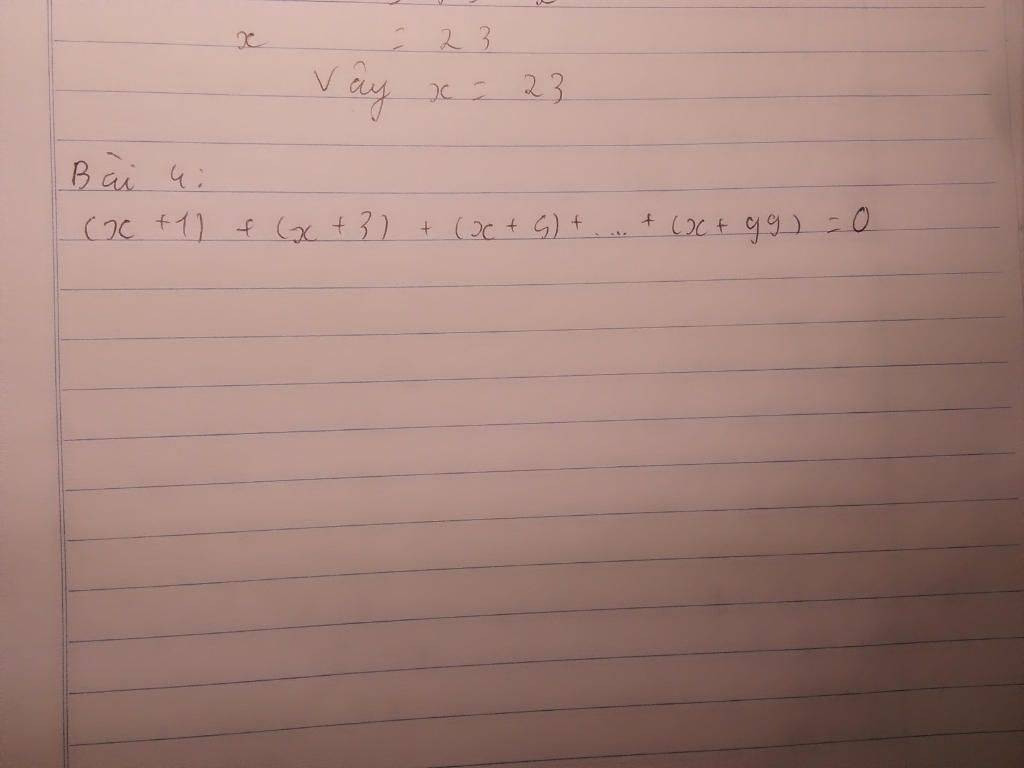 x = 23
Vậy x = 23
Bài 4:
(x + 1) + (x + 3) + (x + 5) + .... + (x + 99) = 0